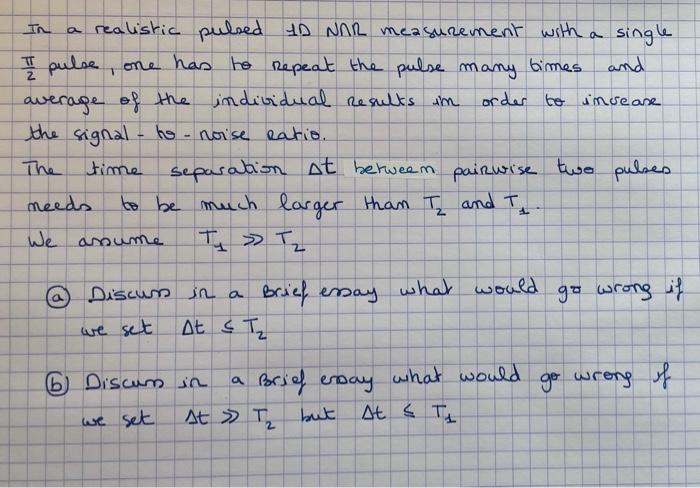 In a realistic pulsed 1D NMR measurement with a single
π/2 pulse, one has to repeat the pulse many times and
average of the individual results in order to increase
the signal-to-noise ratio.
The time separation Δt between pairwise two pulses
needs to be much larger than T₂ and T₁.
We assume T₁ >> T₂
(a) Discuss in a Brief essay what would go wrong if
we set Δt ≤ T₂
(b) Discuss in a Brief essay what would go wrong if
we set Δt >> T₂ but Δt ≤ T₁